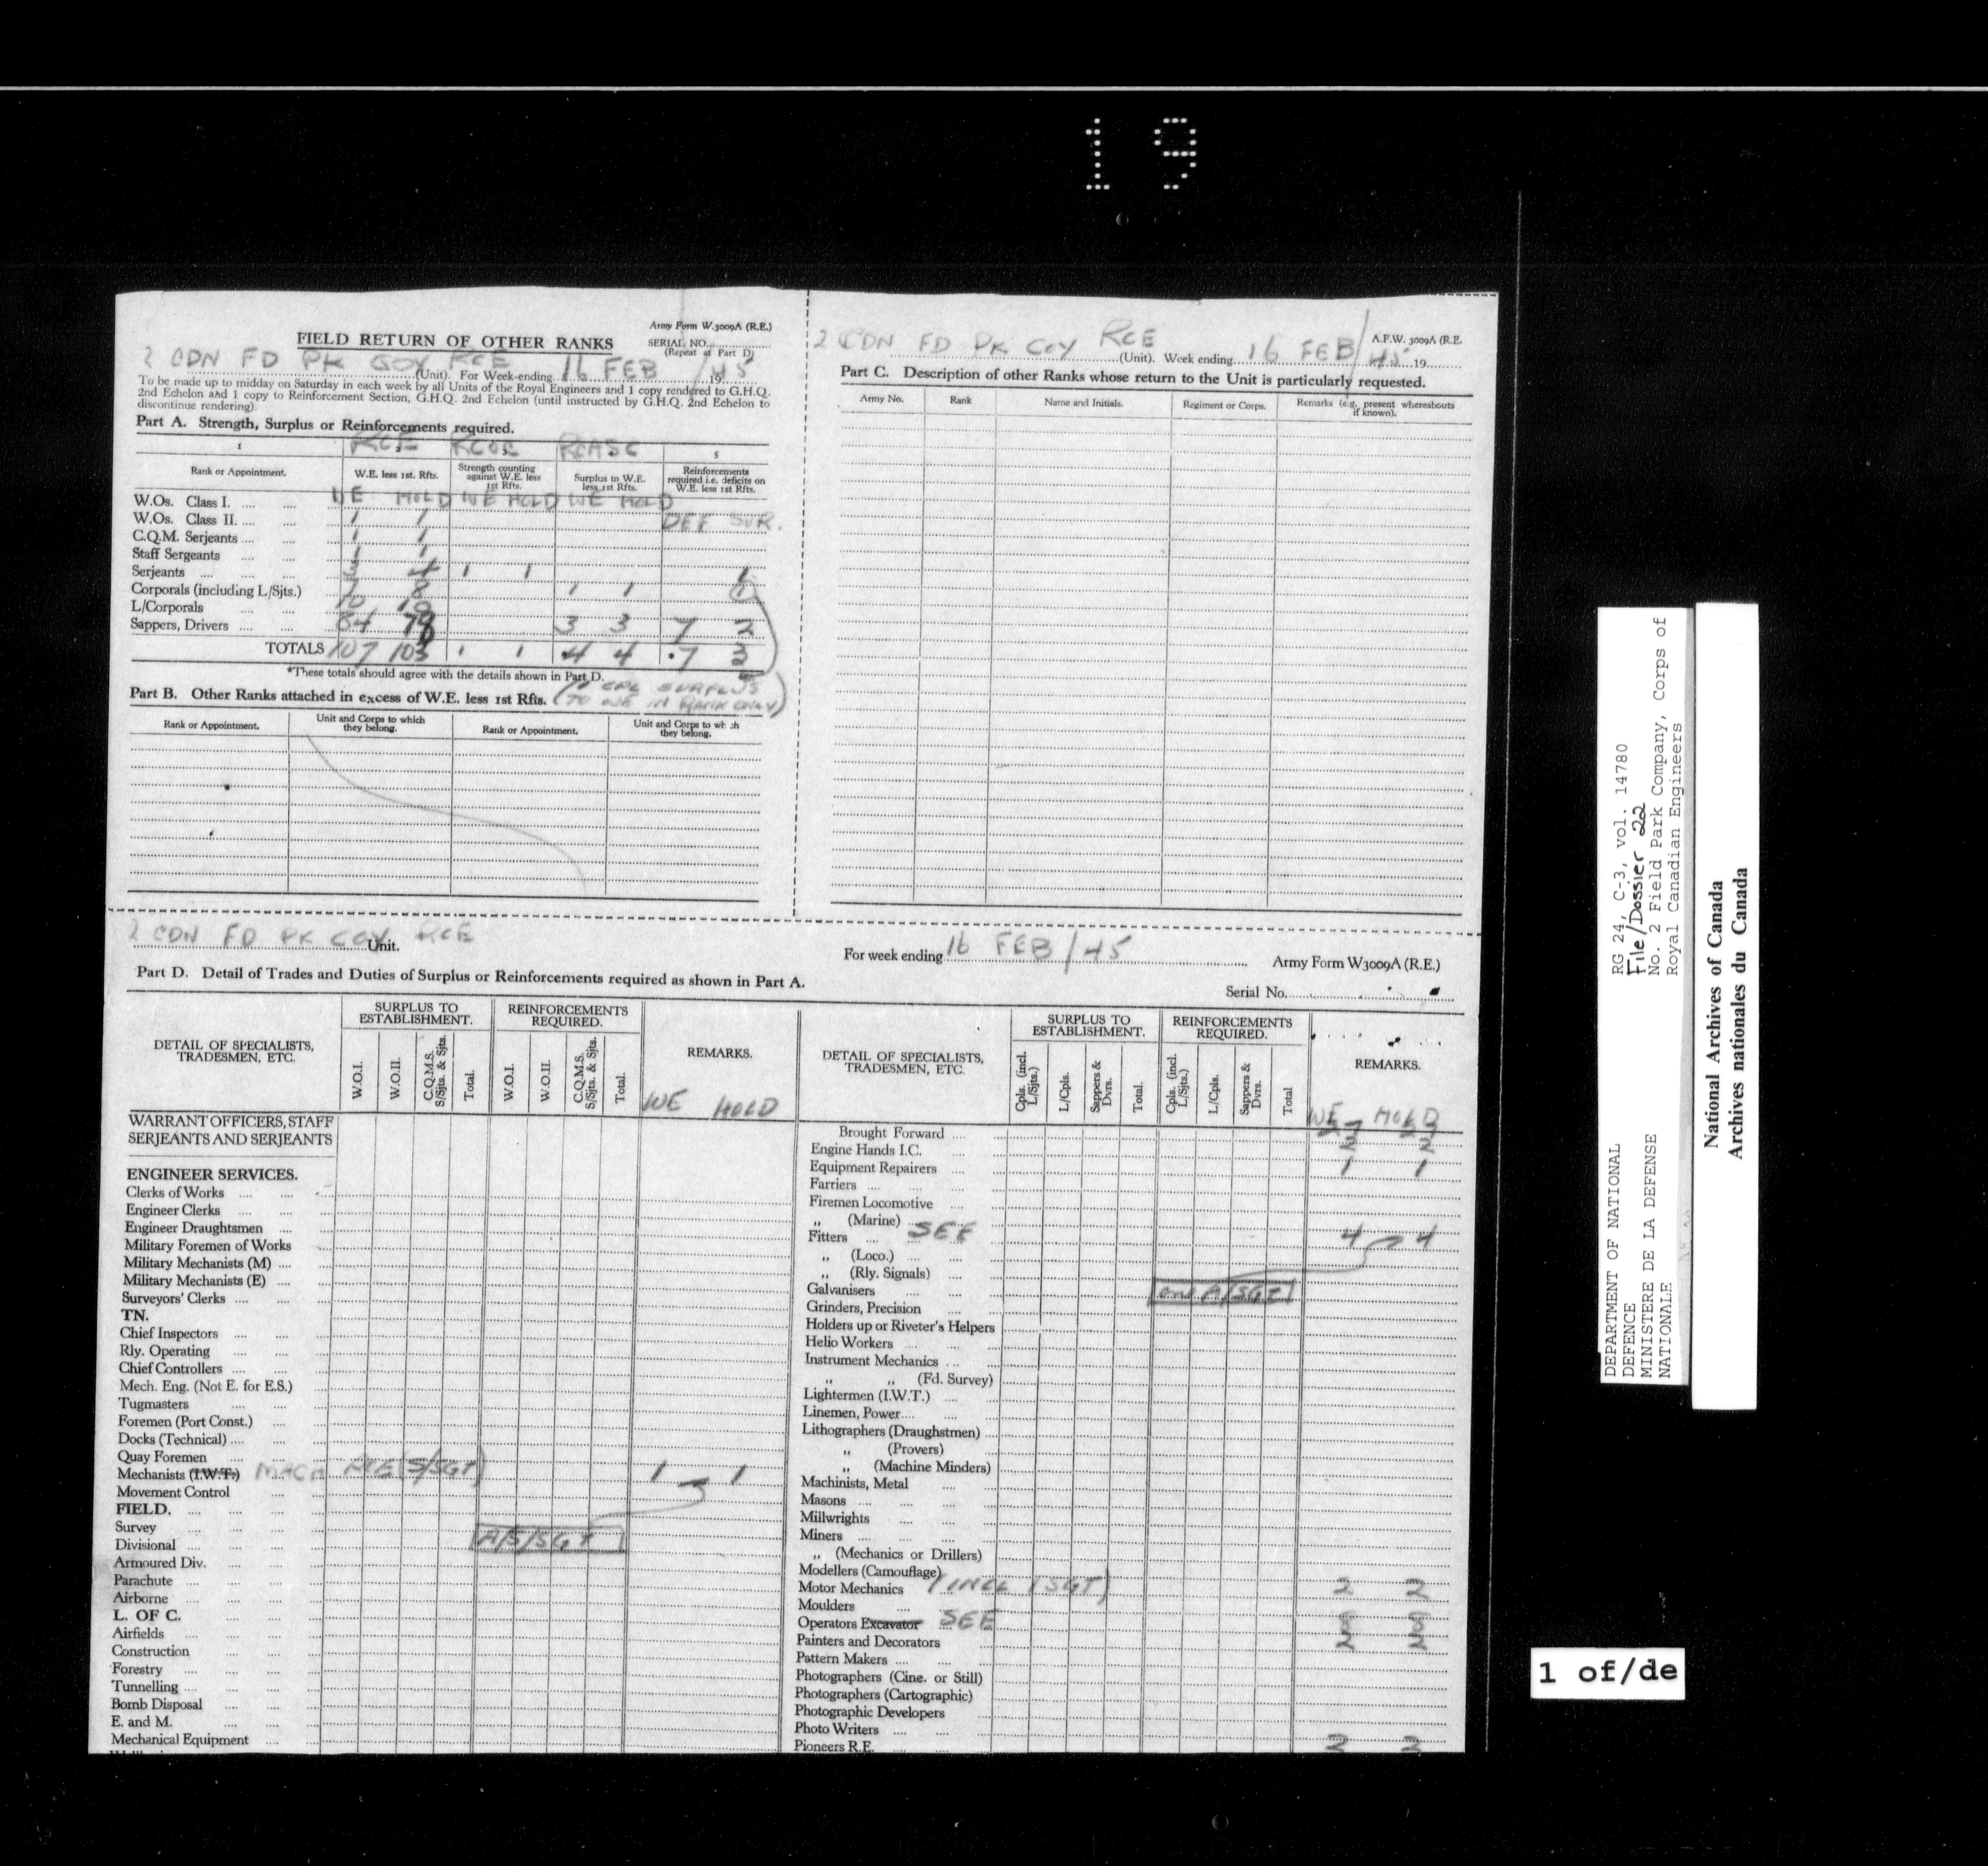 19
Army Form W.3009A (R.E.)
FIELD RETURN OF OTHER RANKS
SERIAL NO.
(Repeat at Part D)
2 CDN FD PK COY RCE (Unit). For Week-ending 16 FEB /45 19
To be made up to midday on Saturday in each week by all Units of the Royal Engineers and 1 copy rendered to G.H.Q.
2nd Echelon and 1 copy to Reinforcement Section, G.H.Q. 2nd Echelon (until instructed by G.H.Q. 2nd Echelon to
discontinue rendering).
Part A. Strength, Surplus or Reinforcements required.
1 RCE RCOC RCASC 5
Rank or Appointment. W.E. less 1st. Rfts. Strength counting against W.E. less 1st Rfts. Surplus to W.E. less 1st Rfts. Reinforcements required i.e. deficits on W.E. less 1st Rfts.
W.Os. Class I. WE HOLD WE HOLD WE HOLD
W.Os. Class II. 1 1 DEF SUR.
C.Q.M. Serjeants 1 1
Staff Sergeants 1 1
Serjeants 3 4 1 1 1
Corporals (including L/Sjts.) 7 8 1 1 1
L/Corporals 10 10
Sappers, Drivers 84 78 3 3 7 2
TOTALS 107 103 1 1 4 4 7 3
*These totals should agree with the details shown in Part D.
Part B. Other Ranks attached in excess of W.E. less 1st Rfts. CPL SURPLUS
TO WE IN RANK ONLY)
Rank or Appointment. Unit and Corps to which they belong. Rank or Appointment. Unit and Corps to which they belong.
2 CDN FD PK COY RCE (Unit). Week ending 16 FEB/45 19
A.F.W. 3009A (R.E.
Part C. Description of other Ranks whose return to the Unit is particularly requested.
Army No. Rank Name and Initials. Regiment or Corps. Remarks (e.g. present whereabouts if known).
2 CDN FD PK COY RCE Unit.
For week ending 16 FEB/45 Army Form W3009A (R.E.)
Part D. Detail of Trades and Duties of Surplus or Reinforcements required as shown in Part A.
Serial No.
DETAIL OF SPECIALISTS, TRADESMEN, ETC.
SURPLUS TO ESTABLISHMENT.
W.O.I. W.O.II. C.Q.M.S. S/Sjts. & Sjts. Total.
REINFORCEMENTS REQUIRED.
W.O.I. W.O.II. C.Q.M.S. S/Sjts. & Sjts. Total.
REMARKS.
WE HOLD
WARRANT OFFICERS, STAFF
SERJEANTS AND SERJEANTS
ENGINEER SERVICES.
Clerks of Works
Engineer Clerks
Engineer Draughtsmen
Military Foremen of Works
Military Mechanists (M)
Military Mechanists (E)
Surveyors' Clerks
TN.
Chief Inspectors
Rly. Operating
Chief Controllers
Mech. Eng. (Not E. for E.S.)
Tugmasters
Foremen (Port Const.)
Docks (Technical)
Quay Foremen
Mechanists (I.W.T.) (S/SGT) 1 1
Movement Control
FIELD.
Survey
Divisional A/S/SGT
Armoured Div.
Parachute
Airborne
L. OF C.
Airfields
Construction
Forestry
Tunnelling
Bomb Disposal
E. and M.
Mechanical Equipment
DETAIL OF SPECIALISTS, TRADESMEN, ETC.
SURPLUS TO ESTABLISHMENT.
Cpls. (incl. L/Sjts.) L/Cpls. Sappers & Dvrs. Total.
REINFORCEMENTS REQUIRED.
Cpls. (incl. L/Sjts.) L/Cpls. Sappers & Dvrs. Total
REMARKS.
WE HOLD
Brought Forward
Engine Hands I.C. 2 2
Equipment Repairers 1 1
Farriers
Firemen Locomotive
„ (Marine)
Fitters SEE 4 4
„ (Loco.)
„ (Rly. Signals)
Galvanisers ONE A/SGT
Grinders, Precision
Holders up or Riveter's Helpers
Helio Workers
Instrument Mechanics
„ „ (Fd. Survey)
Lightermen (I.W.T.)
Linemen, Power
Lithographers (Draughstmen)
„ (Provers)
„ (Machine Minders)
Machinists, Metal
Masons
Millwrights
Miners
„ (Mechanics or Drillers)
Modellers (Camouflage)
Motor Mechanics (INCL 1 SGT) 2 2
Moulders
Operators Excavator SEE 8 8
Painters and Decorators 2 2
Pattern Makers
Photographers (Cine. or Still)
Photographers (Cartographic)
Photographic Developers
Photo Writers
Pioneers R.E. 2 2
DEPARTMENT OF NATIONAL
DEFENCE
MINISTERE DE LA DEFENSE
NATIONALE
RG 24, C-3, vol. 14780
File/Dossier 22
No. 2 Field Park Company, Corps of
Royal Canadian Engineers
National Archives of Canada
Archives nationales du Canada
1 of/de